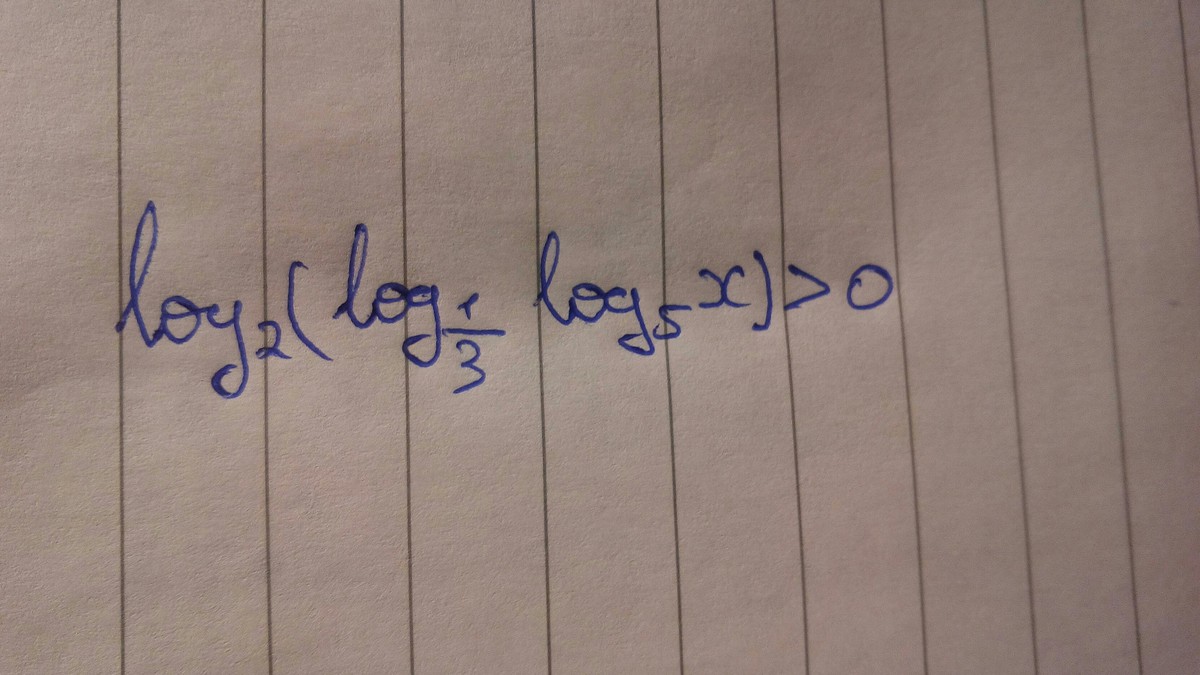 log₂(log_{1/3} log₅ x) > 0